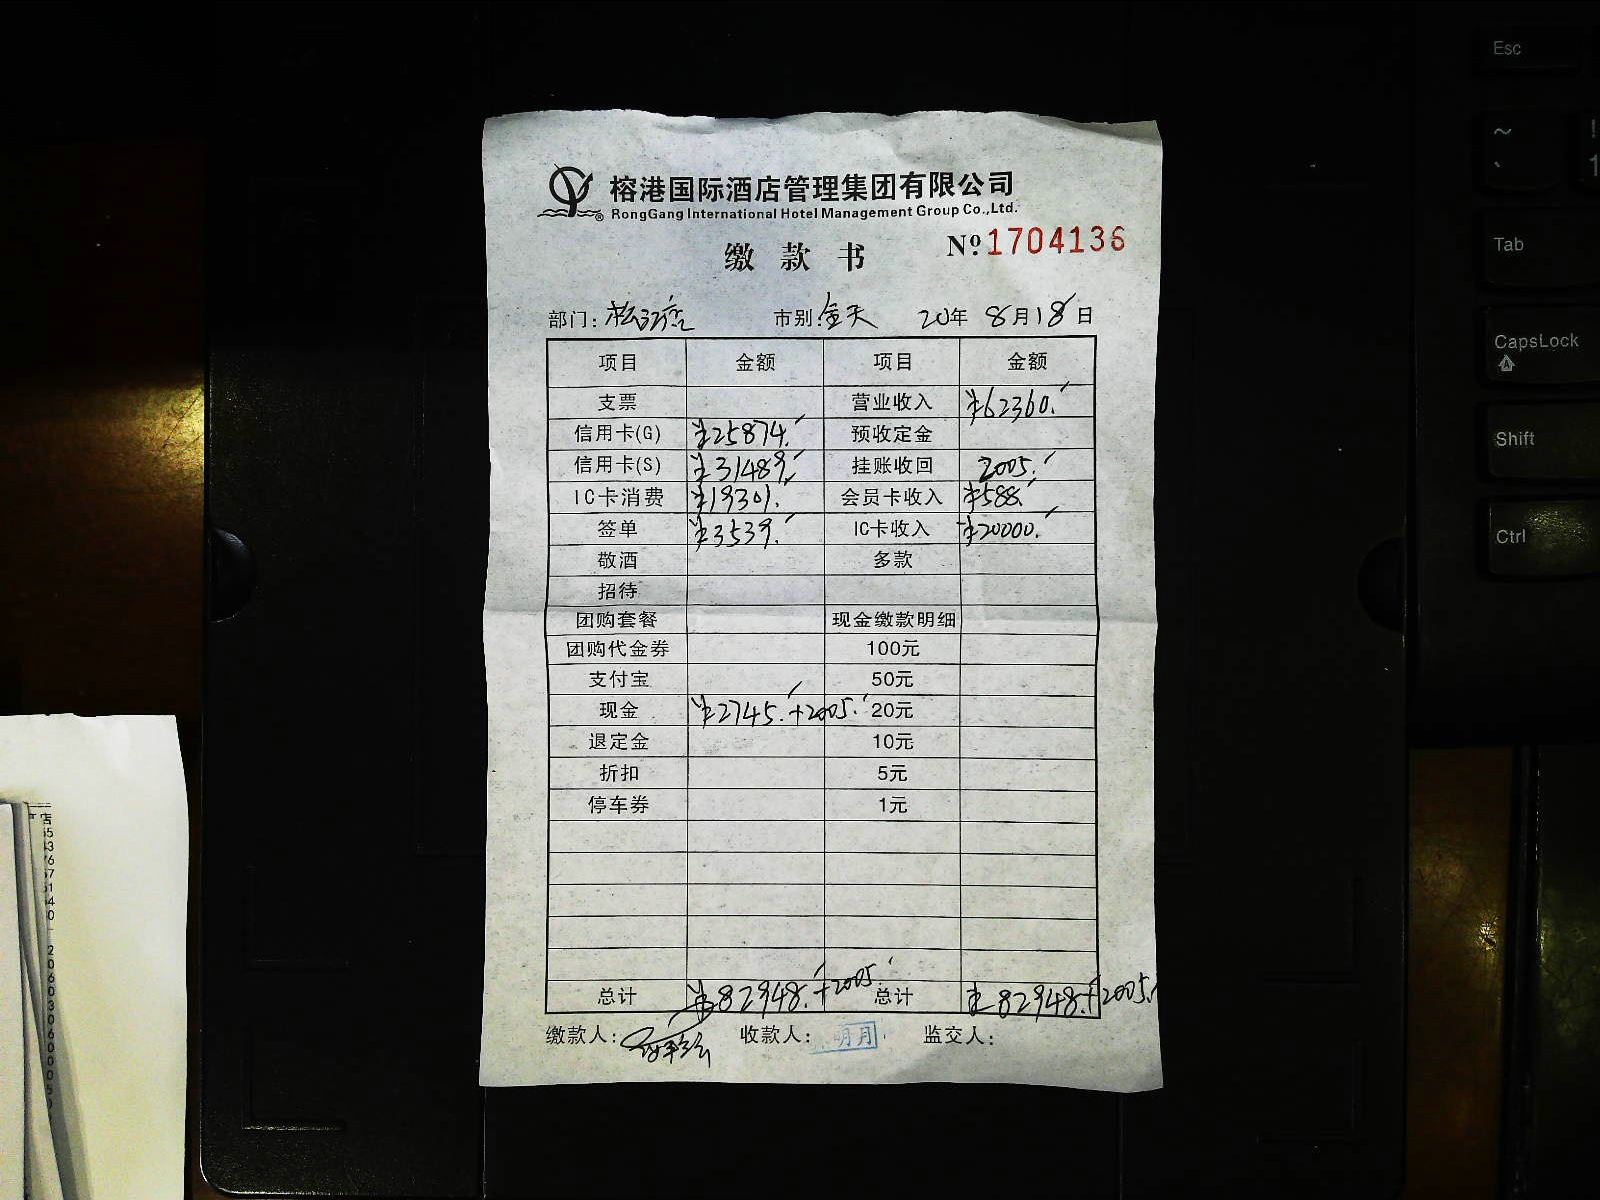 榕港国际酒店管理集团有限公司
RongGang International Hotel Management Group Co.,Ltd.
缴款书 №1704136
部门: 松江店 市别: 全天 20年 8月18日
项目 金额 项目 金额
支票 营业收入 ¥62360.
信用卡(G) ¥25874. 预收定金
信用卡(S) ¥31489. 挂账收回 2005.
IC卡消费 ¥19301. 会员卡收入 ¥588.
签单 ¥3539. IC卡收入 ¥20000.
敬酒 多款
招待
团购套餐 现金缴款明细
团购代金券 100元
支付宝 50元
现金 ¥2745.+2005. 20元
退定金 10元
折扣 5元
停车券 1元
总计 ¥82948.+2005. 总计 ¥82948.+2005.
缴款人: 收款人: 明月 监交人:
Esc
~
Tab
CapsLock
Shift
Ctrl